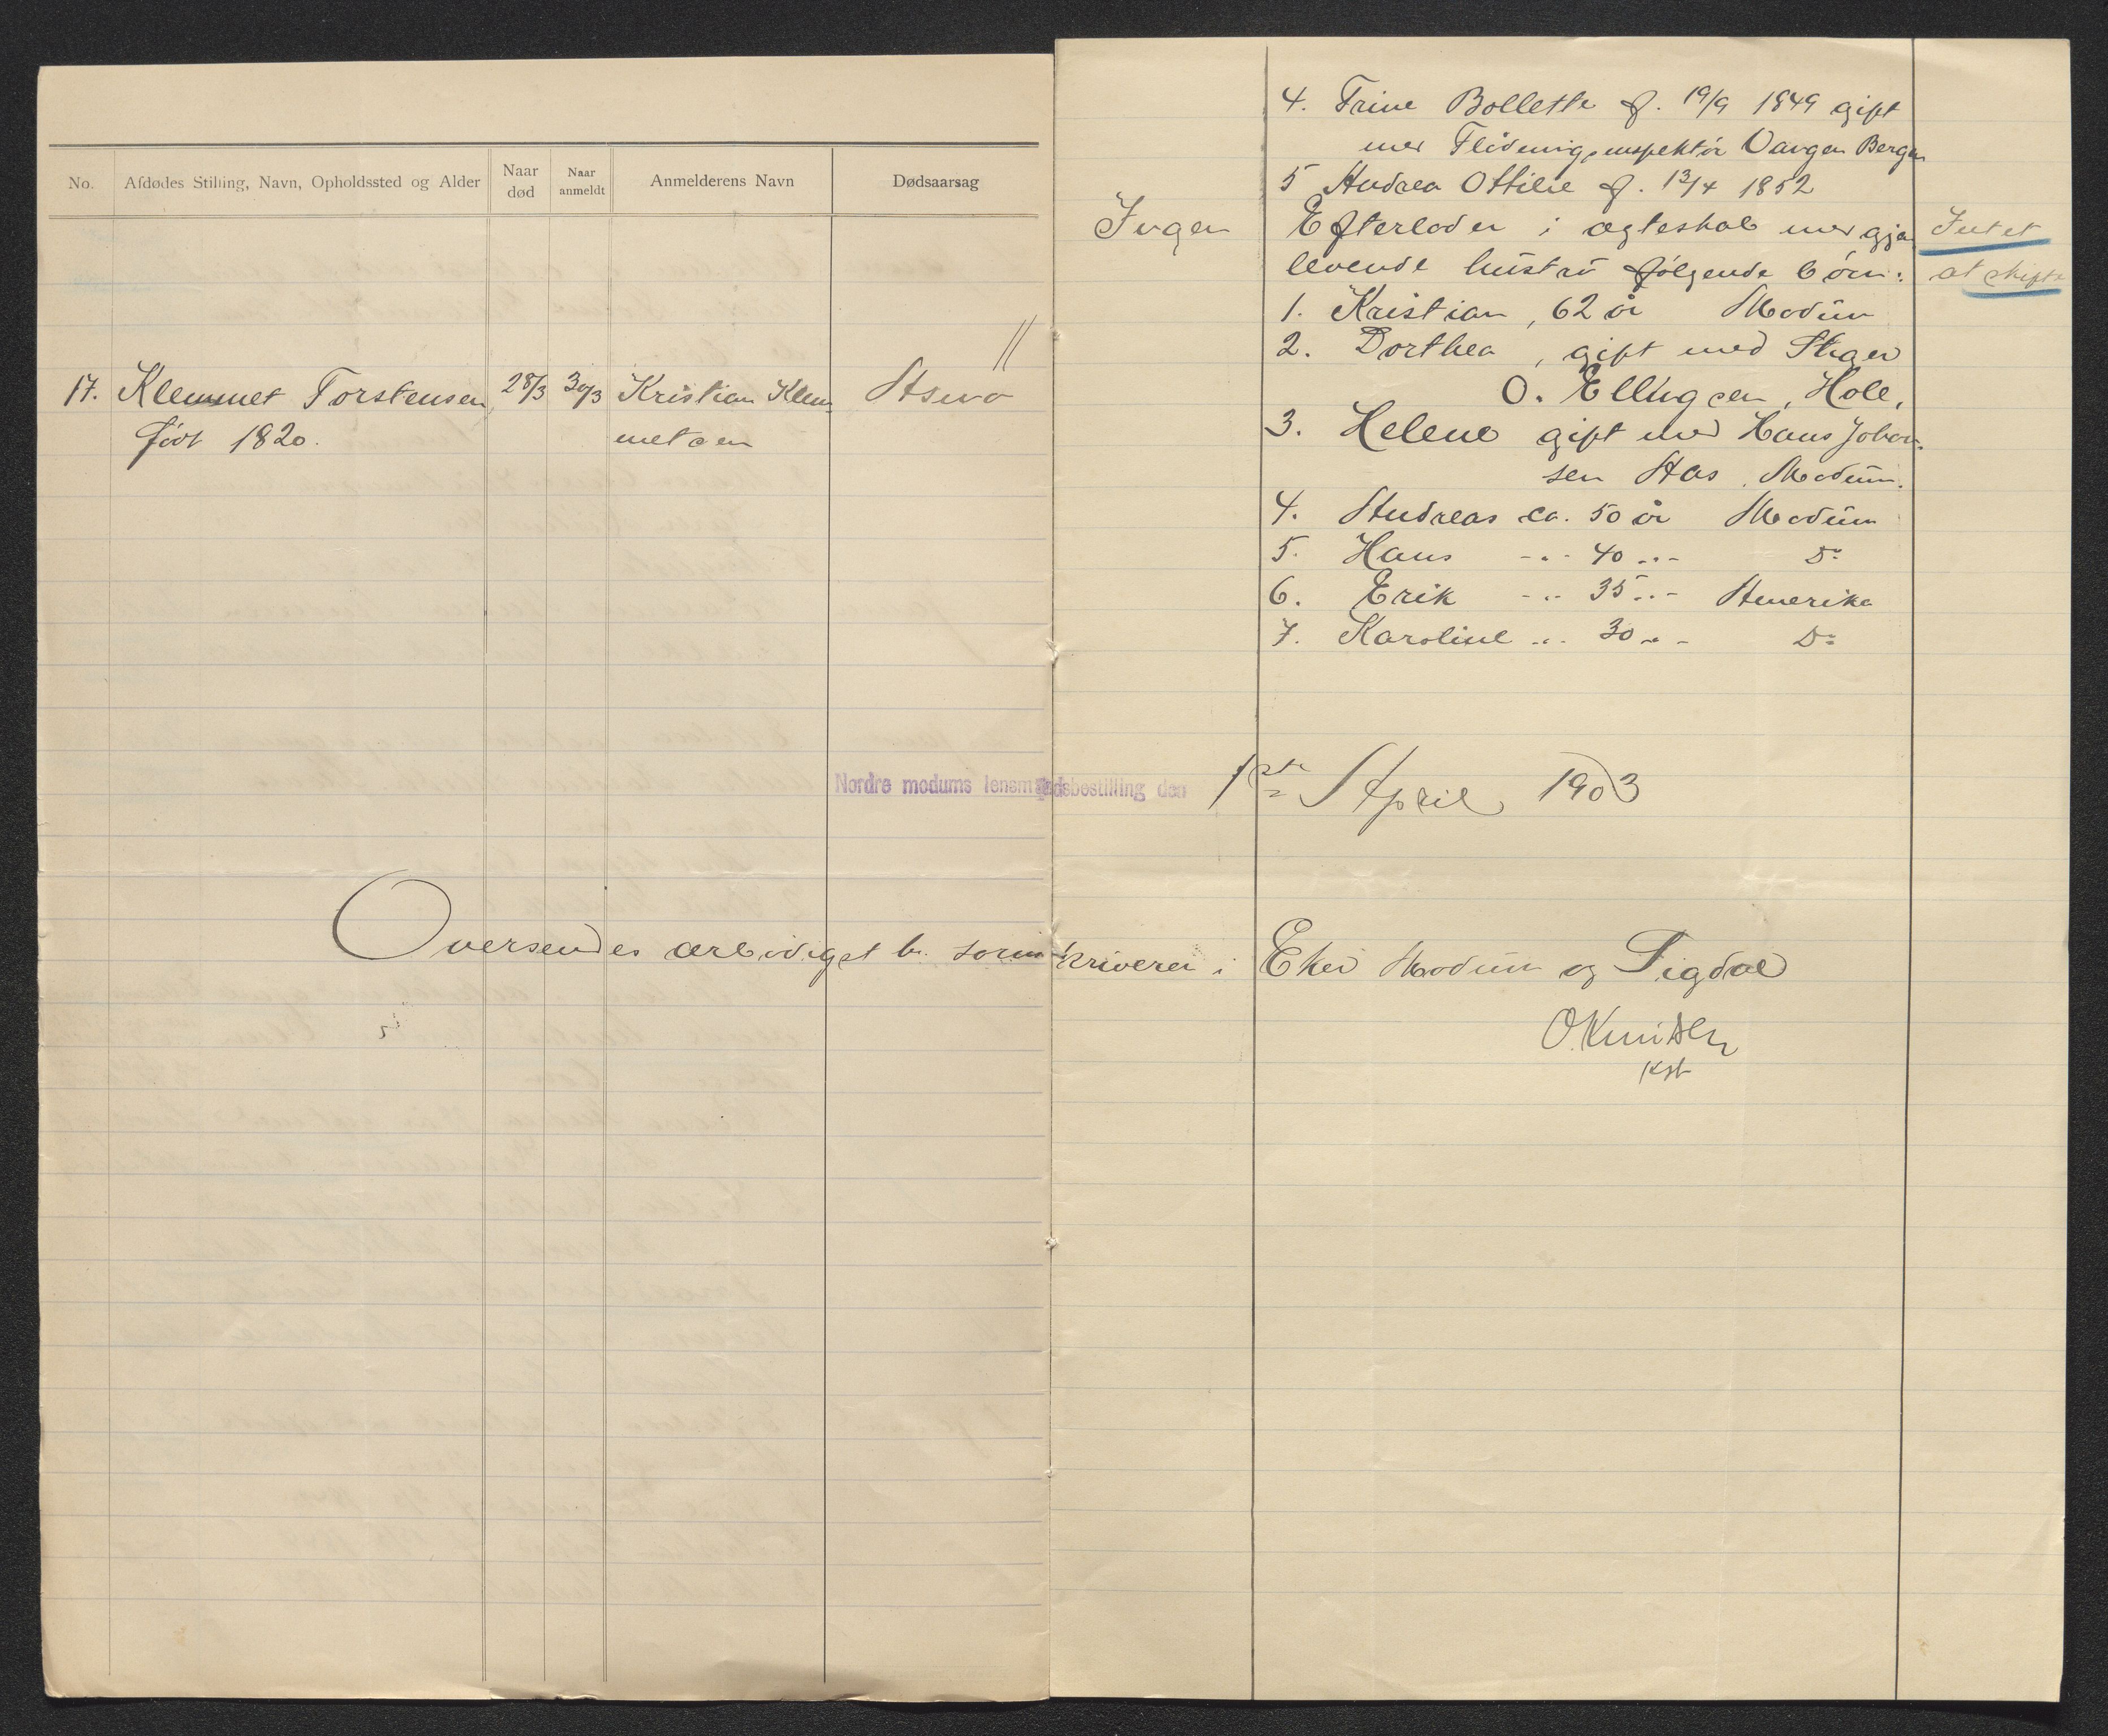 No.
Afdødes Stilling, Navn, Opholdssted og Alder
Naar død
Naar anmeldt
Anmelderens Navn
Dødsaarsag
17. Klemmet Torstensen 28/3 30/3 Kristian Klem
født 1820. metsen
Nordre modums lensmandsbestilling den 1ste April 1903
Oversendes ærbødigst hr. sorenskriveren i Eker Modum og Sigdal
O. Knudsen
kst
4. Trine Bollette f. 19/9 1849 gift
med Bergen
5 Andrea Ottilie f. 13/4 1852
Ingen Efterlader i ægteskab med gjen Intet
levende hustru følgende børn: at skifte
1. Kristian, 62 år Modum
2. Dorthea, gift med
O. Ellingsen, Hole,
3. Helene gift med Hans Johan-
sen Aas, Modum.
4. Andreas ca. 50 år Modum
5. Hans -"- 40 -"- Do
6. Erik -"- 35 -"- Amerika
7. Karoline -"- 30 -"- Do